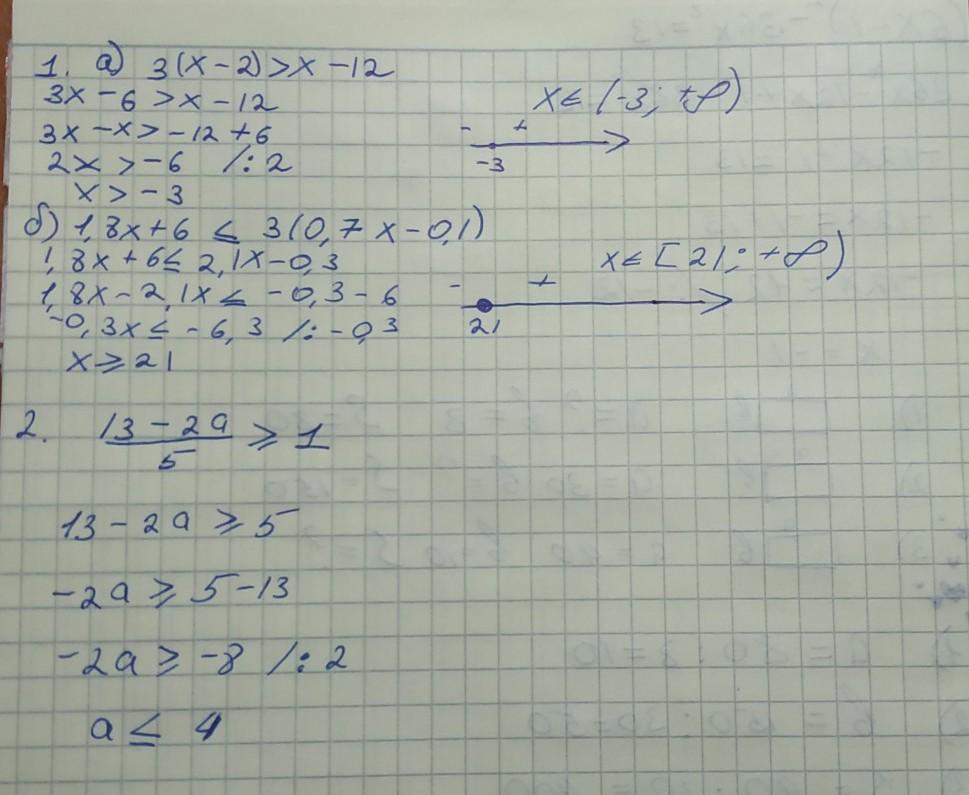 1. а) 3(x-2)>x-12
3x-6>x-12
x≤ (-3; +∞)
3x-x>-12+6
- +
-3
2x>-6 /:2
x>-3
б) 1,8x+6 ≤ 3(0,7x-0,1)
1,8x+6≤2,1x-0,3
x≤[21; +∞)
1,8x-2,1x≤ -0,3-6
- +
21
-0,3x≤-6,3 /:-0,3
x⩾21
2. (13-2a)/5 ⩾ 1
13-2a⩾5
-2a⩾5-13
-2a⩾-8 /:2
a≤ 4